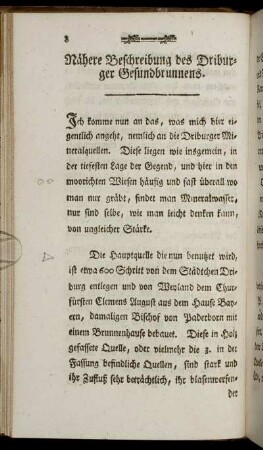 8
Nähere Beschreibung des Dribur-
ger Gesundbrunnens.
Ich komme nun an das, was mich hier ei-
gentlich angeht, nemlich an die Driburger Mi-
neralquellen. Diese liegen wie insgemein, in
der tiefesten Lage der Gegend, und hier in den
moorichten Wiesen häufig und fast überall wo
man nur gräbt, findet man Mineralwasser,
nur sind selbe, wie man leicht denken kann,
von ungleicher Stärke.
Die Hauptquelle die nun benutzet wird,
ist etwa 600 Schritt von dem Städtchen Dri-
burg entlegen und von Weyland dem Chur-
fürsten Clemens August aus dem Hause Bay-
ern, damaligen Bischof von Paderborn mit
einem Brunnenhause bebauet. Diese in Holz
gefassete Quelle, oder vielmehr die 3. in der
Fassung befindliche Quellen, sind stark und
ihr Zufluß sehr beträchtlich, ihr blasenwerfen-
der